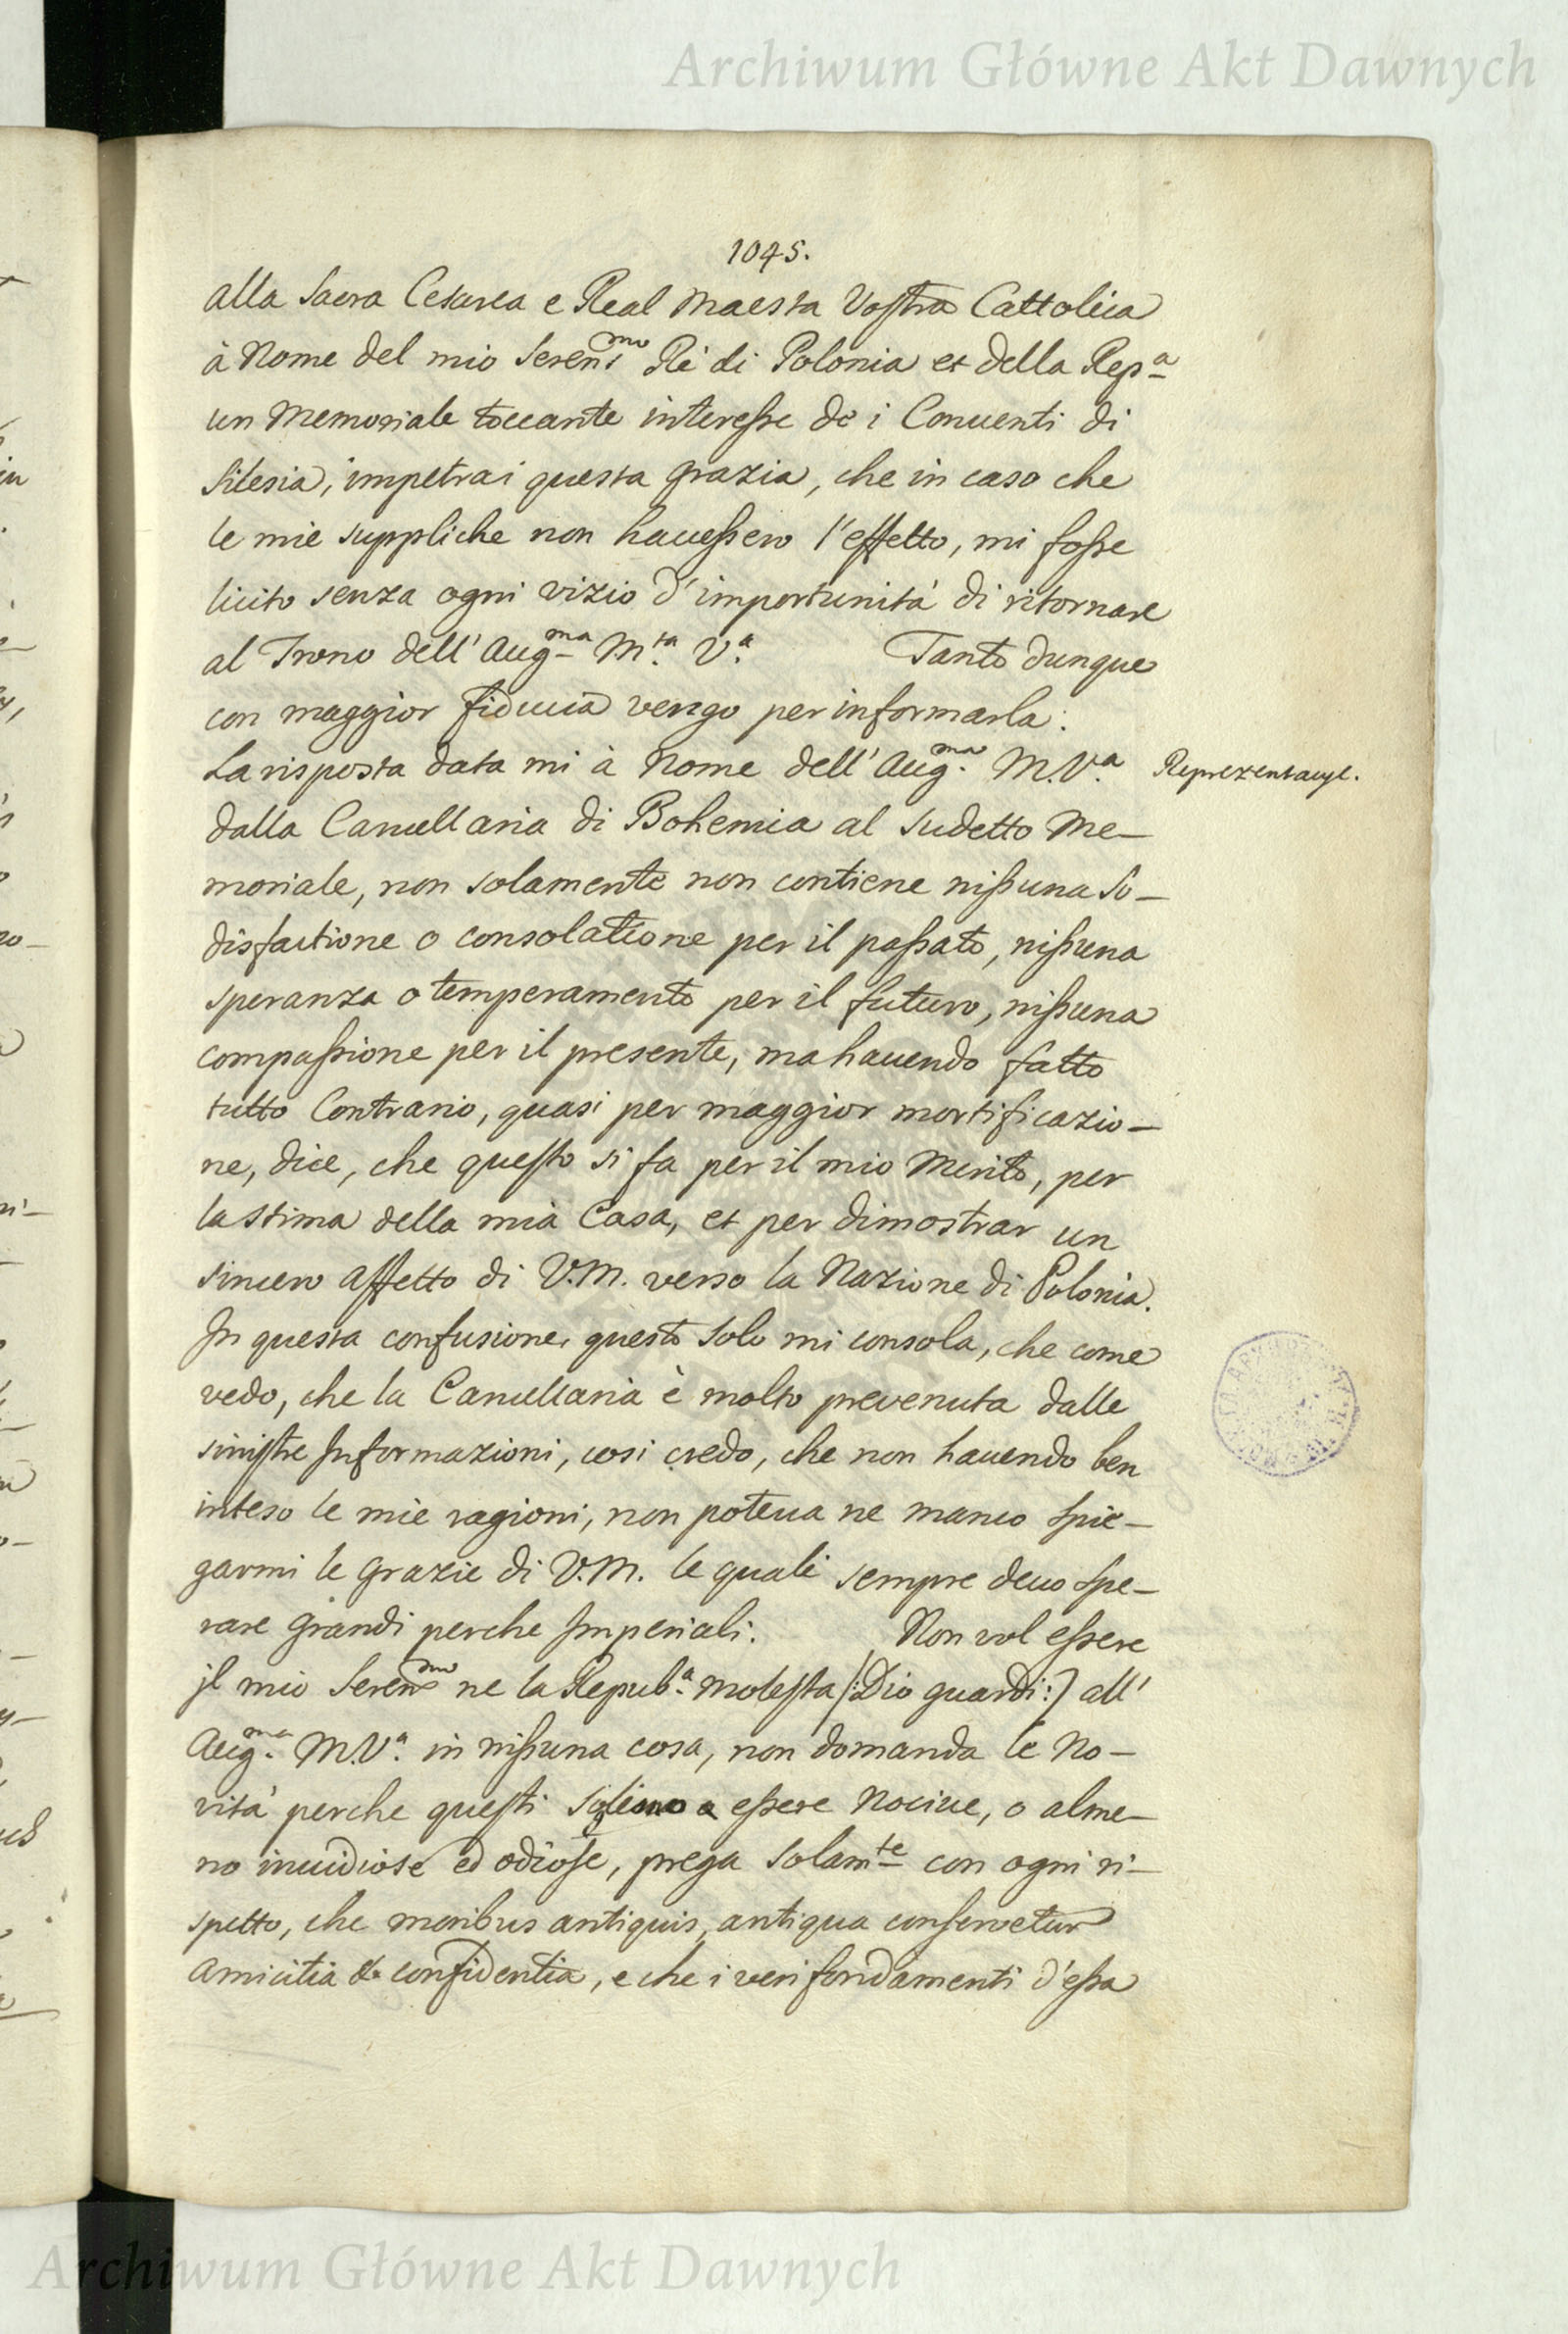 Archiwum Główne Akt Dawnych
1045.
alla Sacra Cesarea e Real Maesta Vostra Cattolica
à Nome del mio Seren^mo Rè di Polonia et della Rep^a
un Memoriale toccante interesse de i Conuenti di
Silesia, impetrai questa grazia, che in caso che
le mie suppliche non hauessero l'effetto, mi fosse
licito senza ogni vizio d'importunità di ritornare
al Trono dell'Aug^ma M^ta V^a. Tanto dunque
con maggior fiducia vengo per informarla:
La risposta data mi à Nome dell'Aug^ma M.V^a. Reprezentacye.
dalla Cancellaria di Bohemia al sudetto Me-
moriale, non solamente non contiene nissuna So-
disfactione o consolatione per il passato, nissuna
speranza o temperamento per il futuro, nissuna
compassione per il presente, ma hauendo fatto
tutto Contrario, quasi per maggior mortificazio-
ne, dice, che questo si fa per il mio Merito, per
la stima della mia Casa, et per dimostrar un
sincero Affetto di V.M. verso la Nazione di Polonia.
In questa confusione, questo solo mi consola, che come
vedo, che la Cancellaria è molto prevenuta dalle
sinistre Informazioni, cosi credo, che non hauendo ben
inteso le mie ragioni, non poteua ne manco spie-
garmi le grazie di V.M. le quali sempre deuo spe-
rare grandi perche Imperiali. Non vol essere
jl mio Seren^mo ne la Repub^a. molesta /:Dio guardi:/ all'
Aug^ma. M.V^a. in nissuna cosa, non domanda le No-
vità perche questi essere Nociue, o alme-
no inuidiose ed odiose, prega solam^te con ogni ri-
spetto, che moribus antiquis, antiqua conservetur
Amicitia & confidentia, e che i veri fondamenti d'essa
Archiwum Główne Akt Dawnych